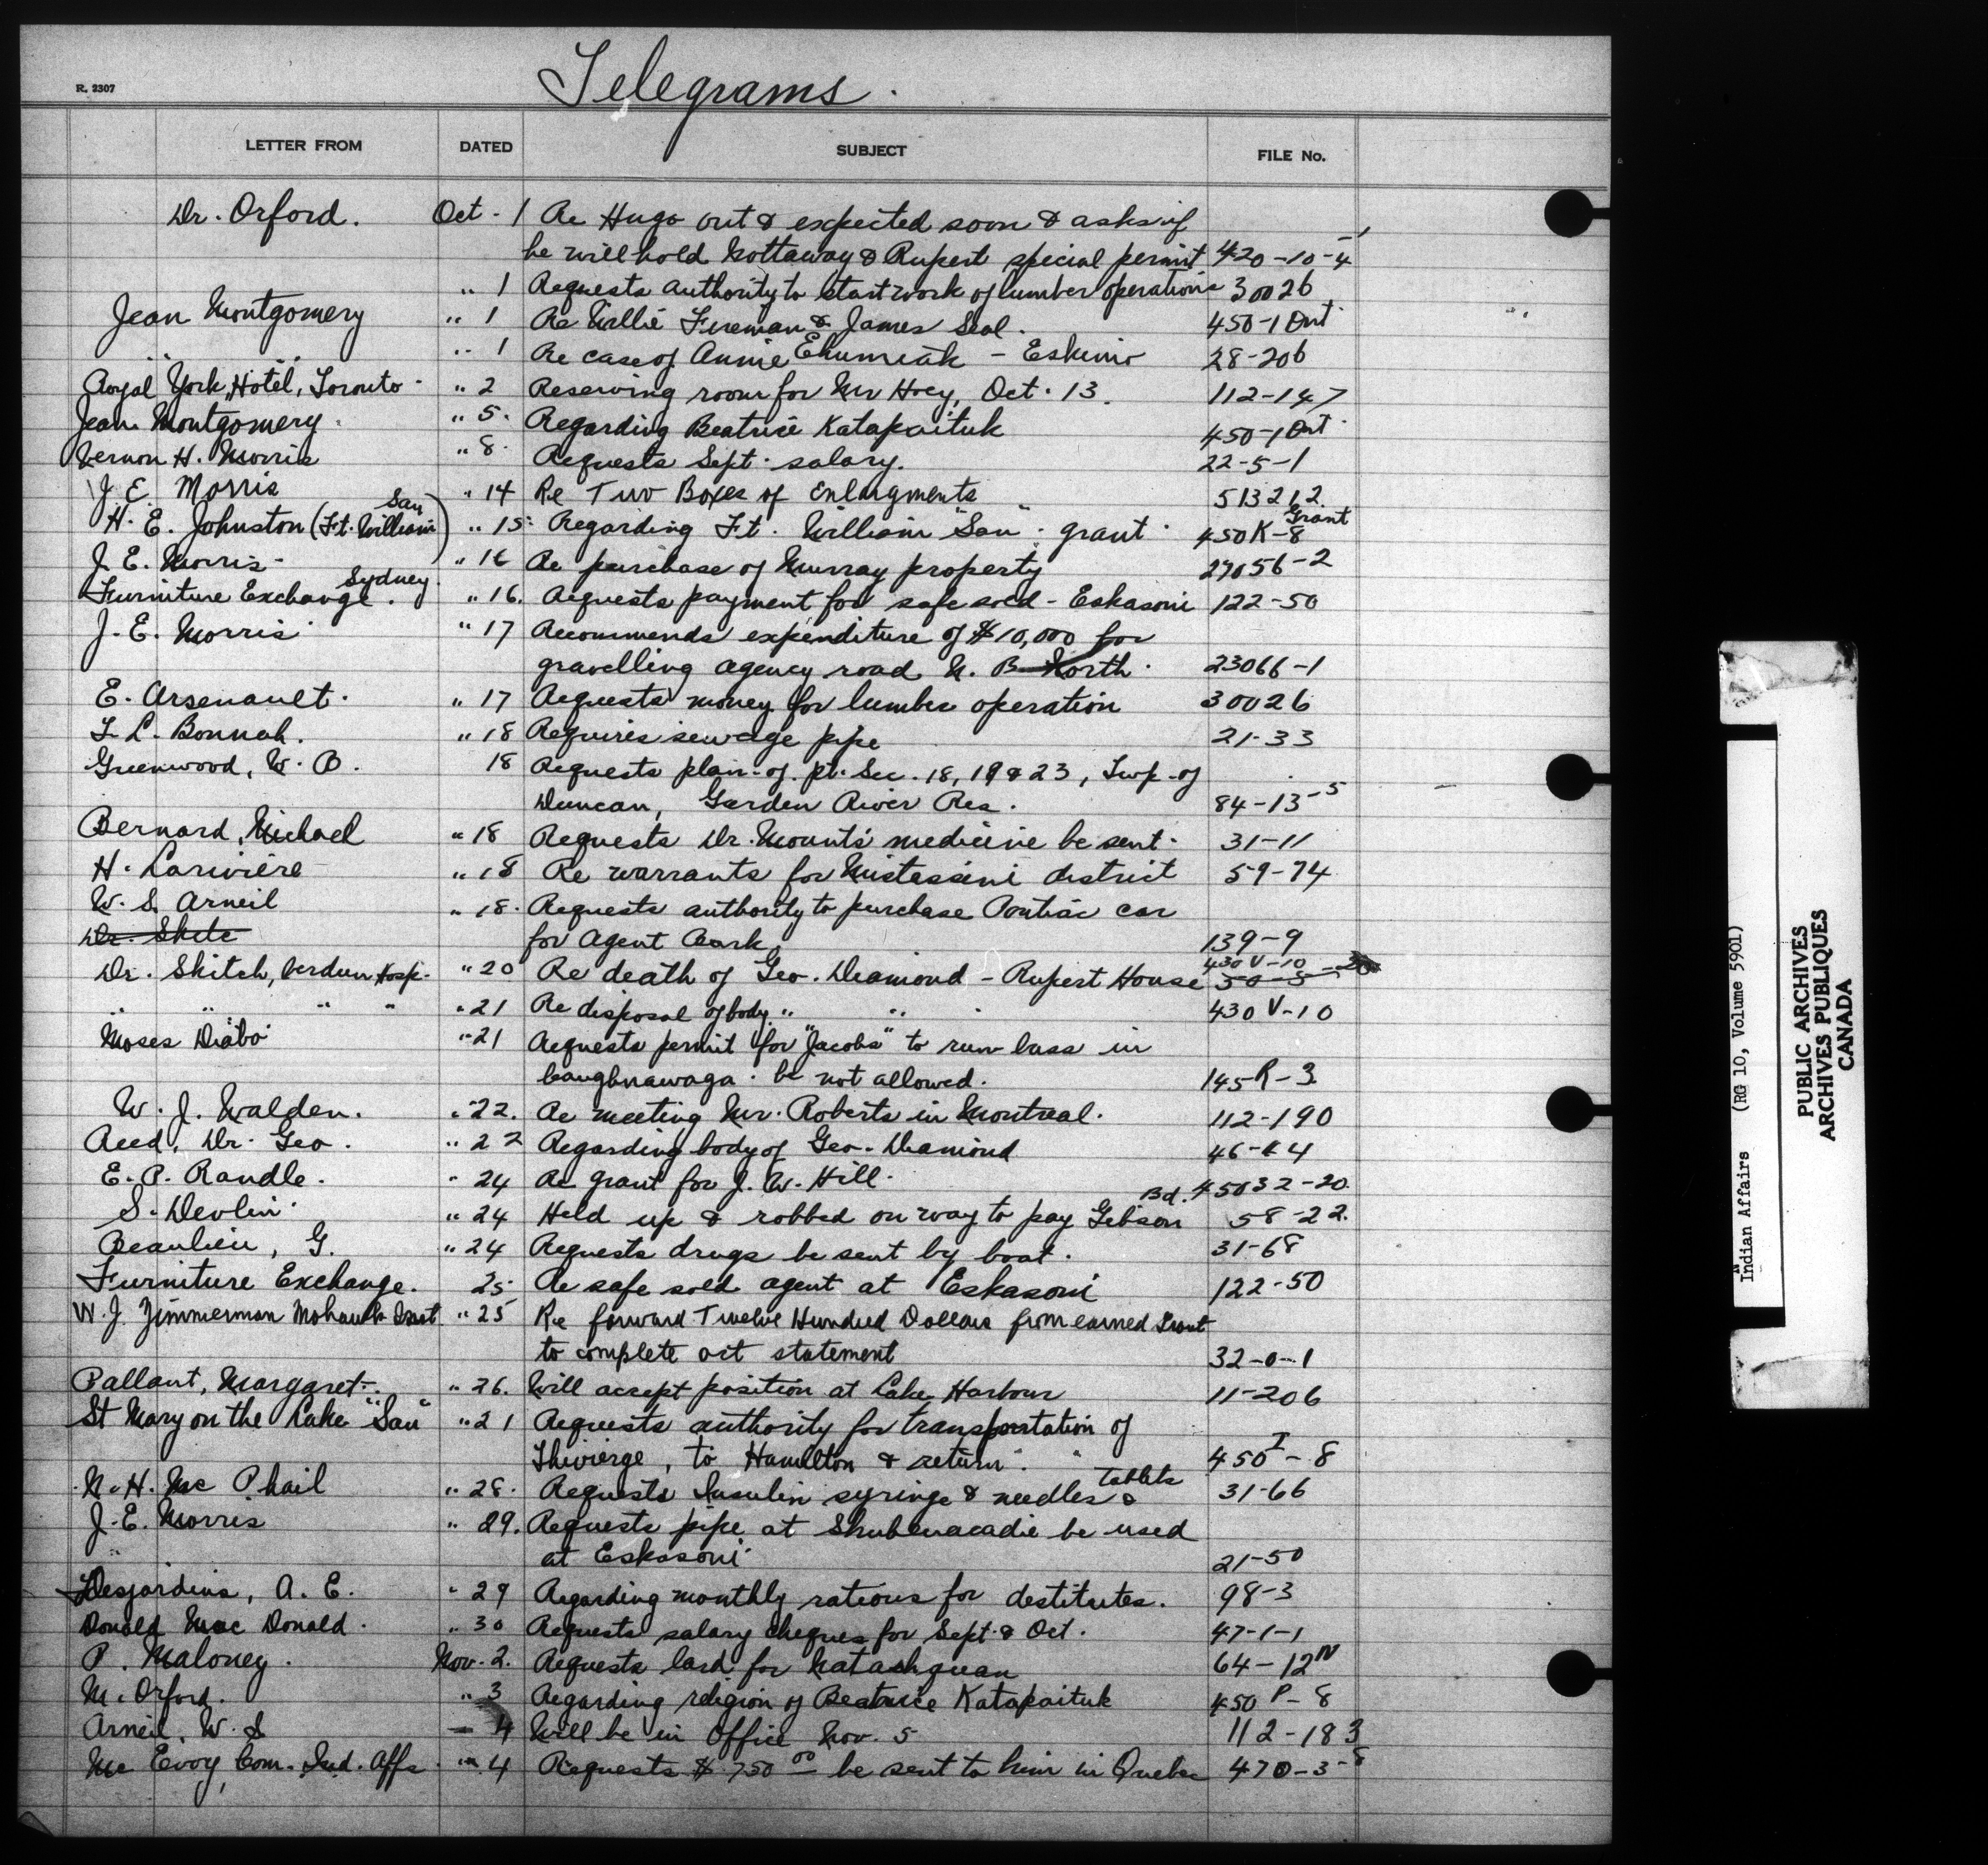 R. 2307
Telegrams.
LETTER FROM DATED SUBJECT FILE No.
Dr. Orford. Oct - 1 Re Hugo out & expected soon & asks if
he will hold Nottaway & Rupert special permit 420-10-4-1
" 1 Requests authority to start work of lumber operations 30026
Jean Montgomery " 1 Re Willie Fireman & James Seal. 450-1 Ont
" " " 1 Re case of Annie - Eskimo 28-206
Royal York Hotel, Toronto - " 2 Reserving room for Mr Hoey, Oct. 13. 112-147
Jean Montgomery. " 5. Regarding Beatrice Katapaituk 450-1 Ont
Vernon H. Morris " 8. Requests Sept. salary. 22-5-1
J E Morris " 14 Re Two Boxes of Enlargments 513212
H. E. Johnston (Ft. William San) " 15 Regarding Ft. William "San". grant. 450K-8 Grant
J. E. Morris - " 16 Re purchase of Murray property 27056-2
Furniture Exchange. Sydney. " 16. Requests payment for safe sold - Eskasoni 122-50
J. E. Morris " 17 Recommends expenditure of $10,000 for
gravelling agency road N. B North. 23066-1
E. Arsenault. " 17 Requests money for lumber operation 30026
L. Bonnah. " 18 Requires sewage pipe 21-33
Greenwood, W. B. 18 Requests plan of pt. Sec. 18, 19 & 23, Twp. of
Duncan, Garden River Res. 84-13-5
Bernard, Michael " 18 Requests Dr. Mounts' medicine be sent. 31-11
H. Lariviere " 18 Re warrants for Mistassini district 59-74
W. S. Arneil " 18. Requests authority to purchase Pontiac car
Dr. Skite for Agent 139-9
Dr. Skitch, Verdun Hosp. " 20 Re death of Geo. Diamond - Rupert House 430 V-10
" " " " " 21 Re disposal of body " " 430 V-10
Moses Diabo " 21 Requests permit for "Jacobs" to run buss in
Caughnawaga. be not allowed. 145R-3
W. J. Walden. " 22. Re meeting Mr. Roberts in Montreal. 112-190
Reed, Dr. Geo. " 22 Regarding body of Geo. Diamond 46-44
E. P. Randle. " 24 Re grant for J. W. Hill. 45032-20
S. Devlin. " 24 Held up & robbed on way to pay Gibson Bd. 58-22.
Beaulieu, G. " 24 Requests drugs be sent by boat. 31-68
Furniture Exchange. 25 Re safe sold agent at Eskasoni 122-50
W. J. Zimmerman Mohawk Inst " 25 Re forward Twelve Hundred Dollars from earned Grant
to complete oct statement 32-0-1
Pallant, Marggret. " 26. Will accept position at Lake Harbour 11-206
St Mary on the Lake "San" " 21 Requests authority for transportation of
Thivierge, to Hamilton & return. 450 I-8
N. H. Mc Phail " 28. Requests Insulin syringe & needles & tablets 31-66
J. E. Morris " 29. Requests pipe at Shubenacadie be used
at Eskasoni 21-50
Desjardins, A. E. " 29 Regarding monthly rations for destitutes. 98-3
Donald Mac Donald. " 30 Requests salary cheques for Sept. & Oct. 47-1-1
P. Maloney. Nov. 2. Requests lard for Natashquan 64-12 N
M. Orford. " 3 Regarding religion of Beatrice Katapaituk 450 P-8
Arneil, W. S " 4 Will be in Office Nov. 5 112-183
Mc Evoy Com. Ind. Affs. " 4 Requests $ 750.00 be sent to him in Quebec 470-3-8
Indian Affairs (RG 10, Volume 5901)
PUBLIC ARCHIVES
ARCHIVES PUBLIQUES
CANADA